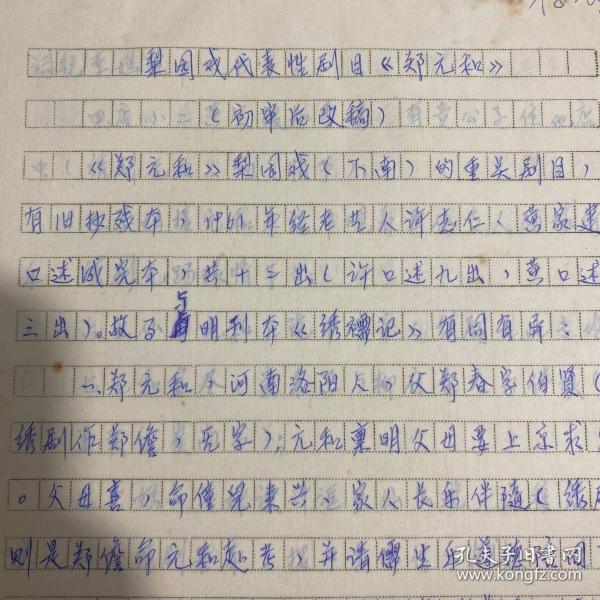 梨园戏代表性剧目《郑元和》
（初审后改稿）
《郑元和》梨园戏（下南）的重头剧目，
有旧抄残本，1961年经老艺人许志仁、黄家
口述成完本，共十二出（许口述九出，黄口述
三出）。故事与明刊本《绣襦记》有同有异：
一、郑元和，河南洛阳人，父郑春字伯贤（
绣剧作郑儋，无字）。元和禀明父母要上京求
。父母喜，命僮儿来兴、家人长乐伴随（绣
则是郑儋命元和赴考，并请儒生乐
孔夫子旧书网
www.kongfz.com